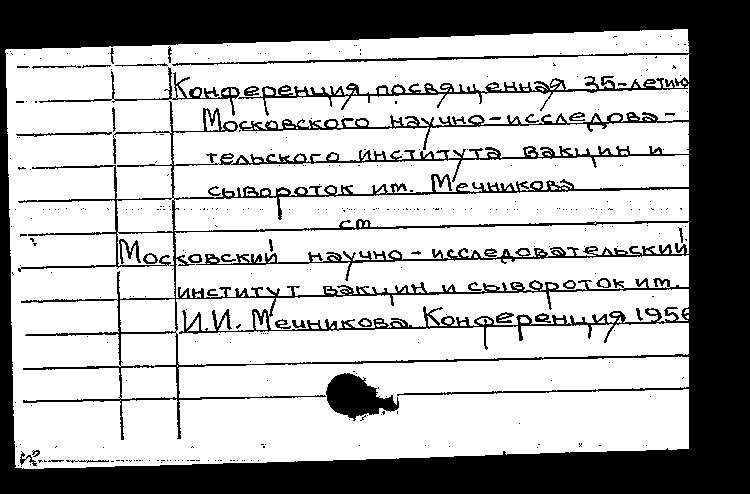 Конференция, посвященная 35-летию
Московского научно-исследова-
тельского института вакцин и
сывороток им. Мечникова
см
Московский научно-исследовательский
институт вакцин и сывороток им.
И.И. Мечникова. Конференция 1956